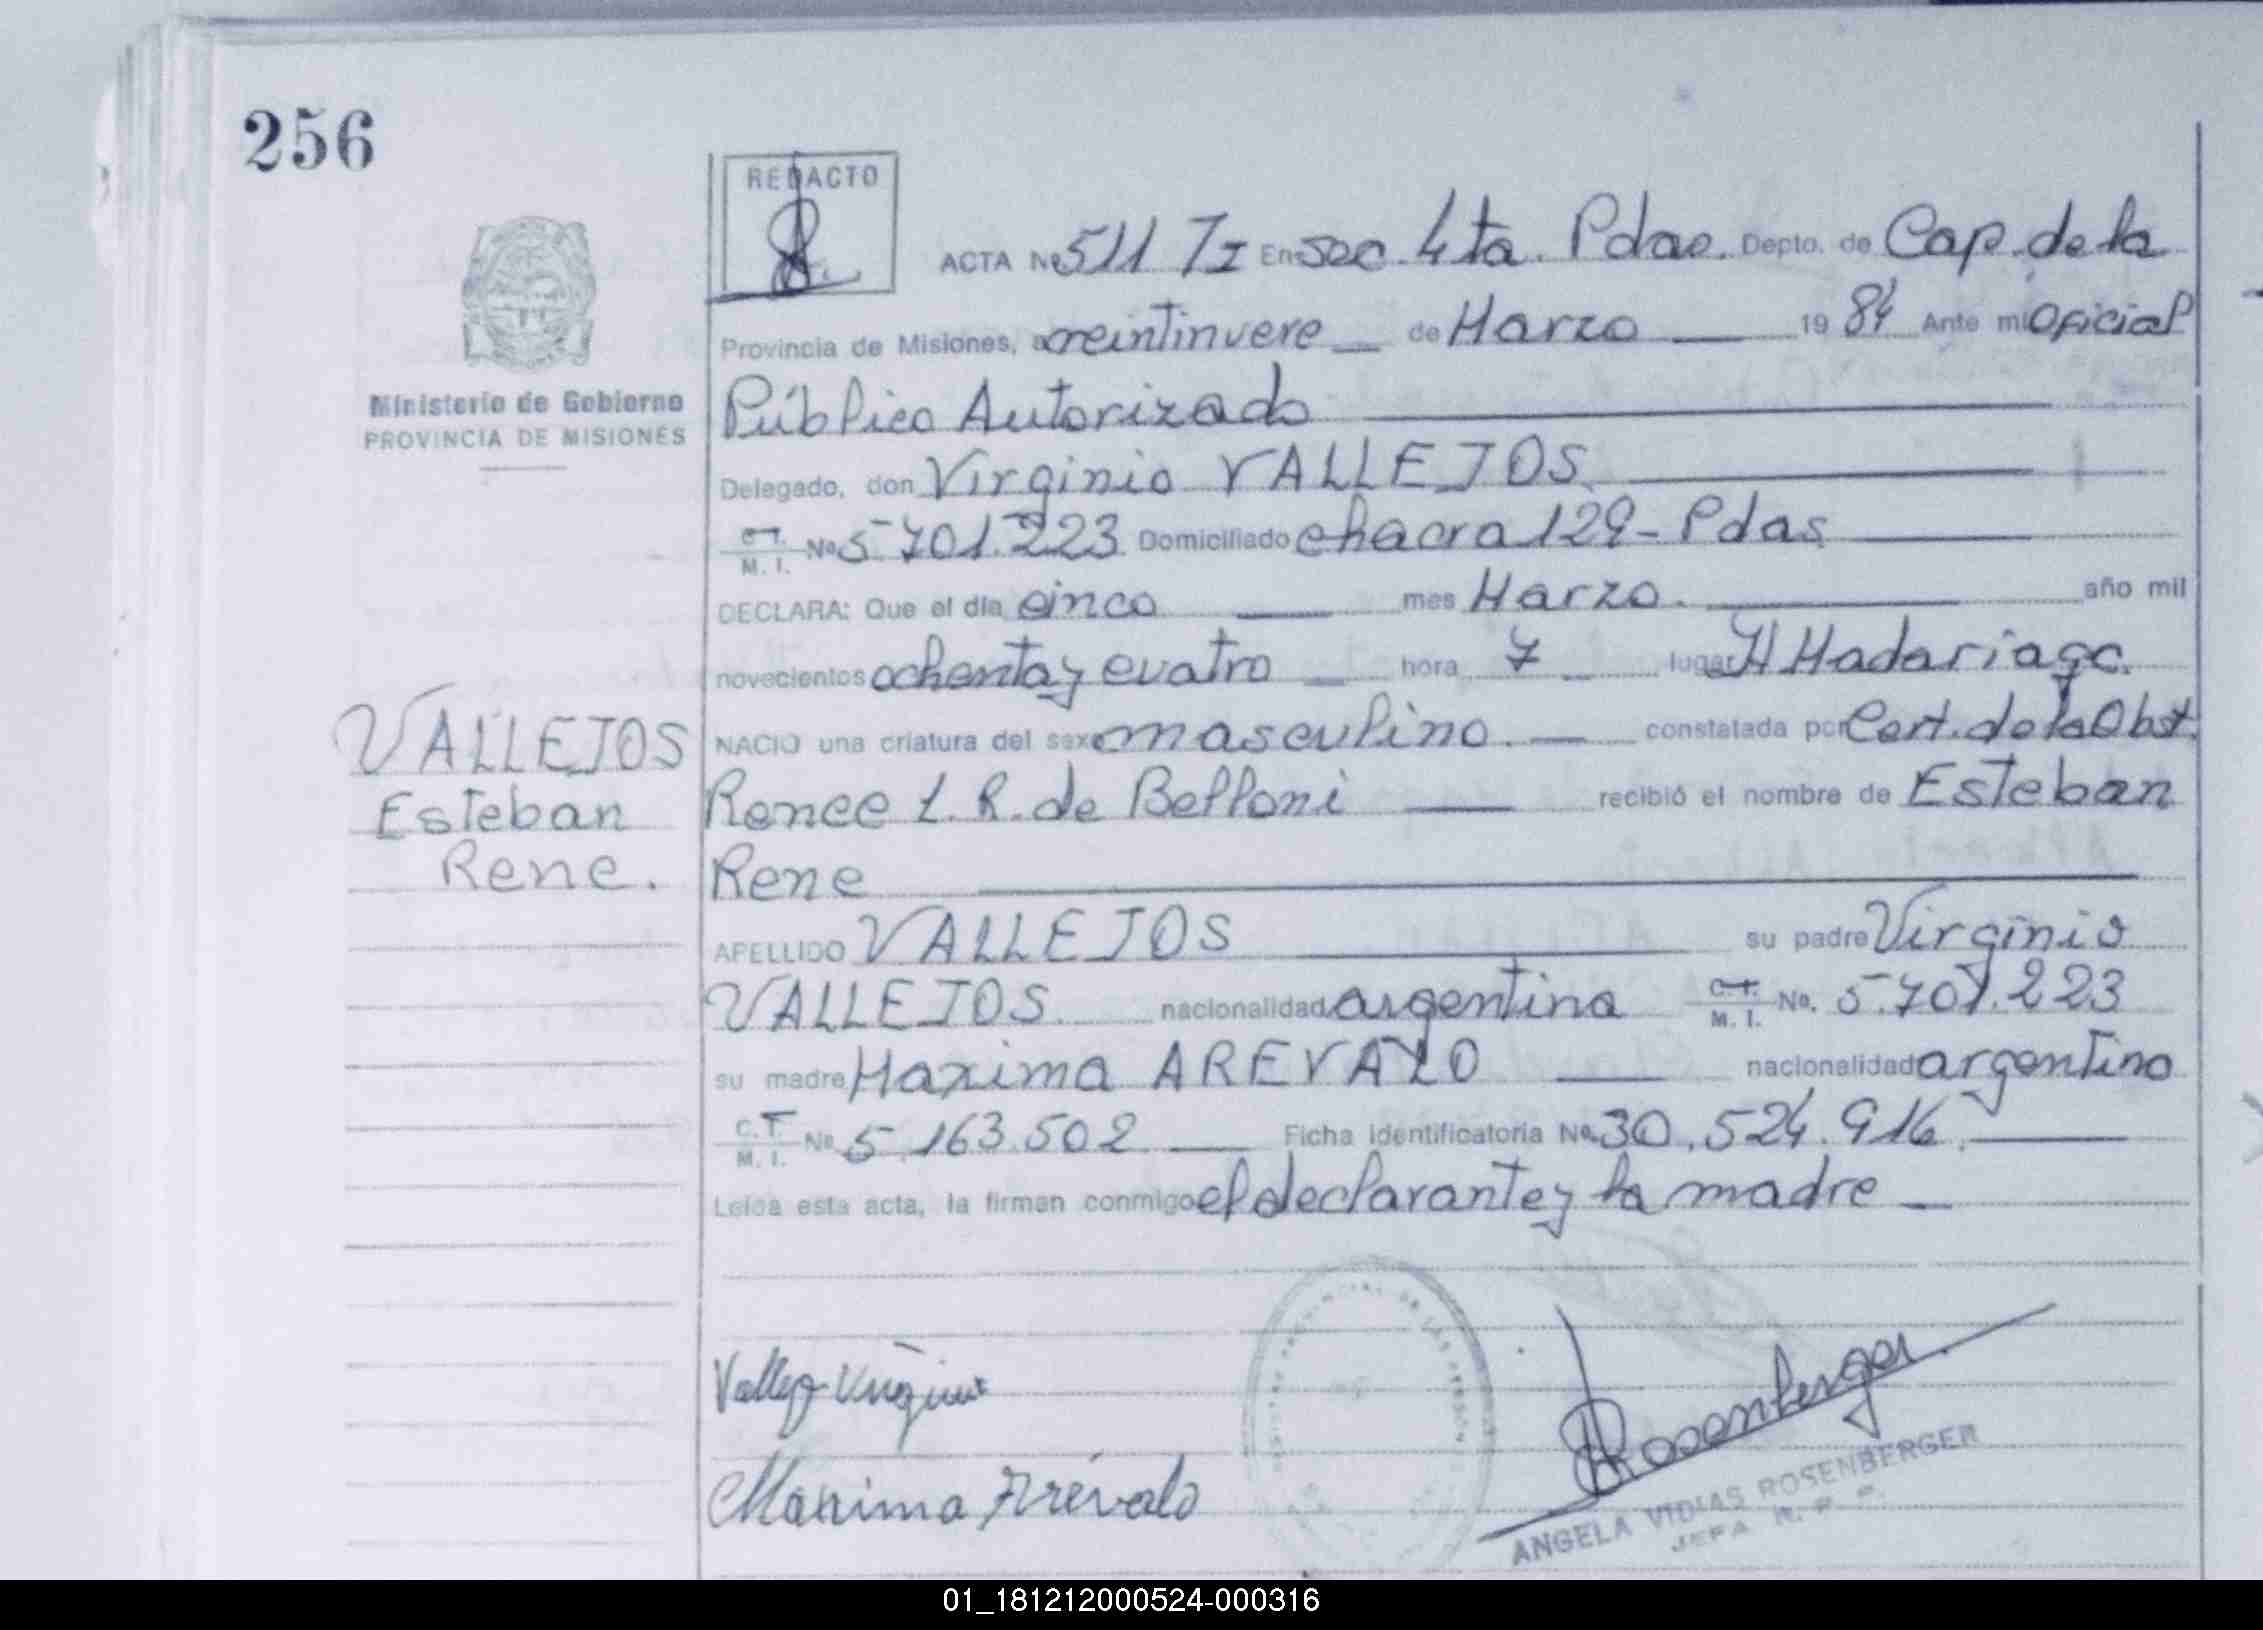 256
REDACTO
ACTA Nº 511 TI En sec. 4ta. Pdas. Depto. de Cap. de la
Provincia de Misiones, a veintinueve de Marzo 19 84 Ante mi Oficial
Público Autorizado
Ministerio de Gobierno
PROVINCIA DE MISIONES
Delegado, don Virginio VALLEJOS
C. I. M. I. Nº 5.701.223 Domiciliado chacra 129 - Pdas
DECLARA: Que el día cinco mes Marzo. año mil
novecientos ochenta y cuatro hora 7 lugar H Madariaga.
VALLEJOS
Esteban
Rene.
NACIO una criatura del sexo masculino. constatada por Cert. de la Obst.
Renee L. R. de Belloni recibió el nombre de Esteban
Rene
APELLIDO VALLEJOS su padre Virginio
VALLEJOS nacionalidad argentina C. I. M. I. No. 5.701.223
su madre Maxima AREVALO nacionalidad argentino
C. I. M. I. Nº 5.163.502 Ficha identificatoria Nº 30.524.916.
Leida esta acta, la firman conmigo el declarante y la madre
Maxima Arévalo
Rosenberger
ANGELA VIDIAS ROSENBERGER
JEFA R. P. P.
01_181212000524-000316